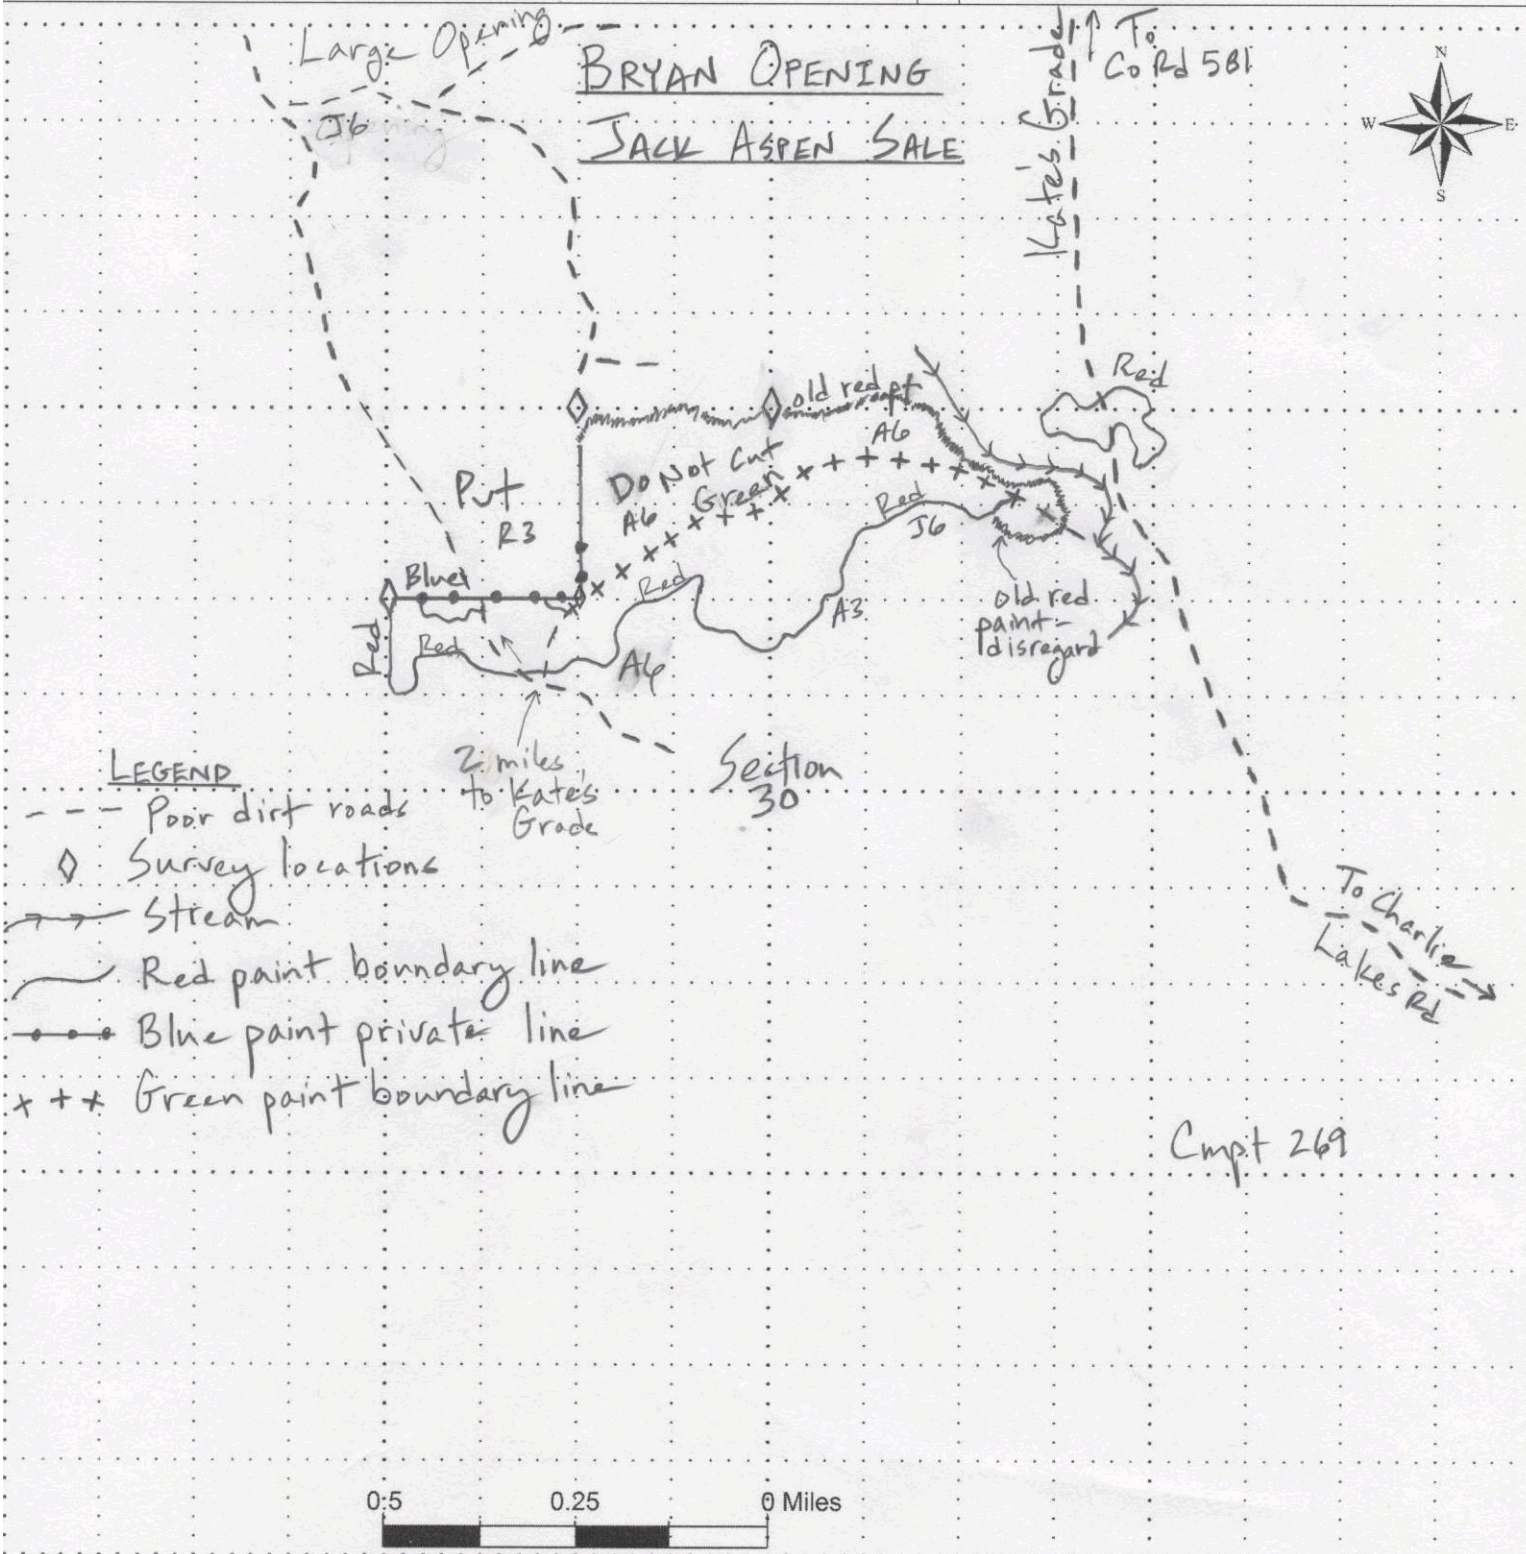 Large Opening
J6
BRYAN OPENING
JACK ASPEN SALE
Kate's Grade
To
Co Rd 581
N
W
E
S
Red
old red pt
A6
Do Not Cut
Green
A6
Put
R3
Blue
Red
Red
Red
Red
J6
A3
A6
old red
paint -
disregard
2 miles
to Kate's
Grade
Section
30
LEGEND
Poor dirt roads
Survey locations
Stream
Red paint boundary line
Blue paint private line
Green paint boundary line
To Charlie
Lakes Rd
Cmpt 269
0.5 0.25 0 Miles